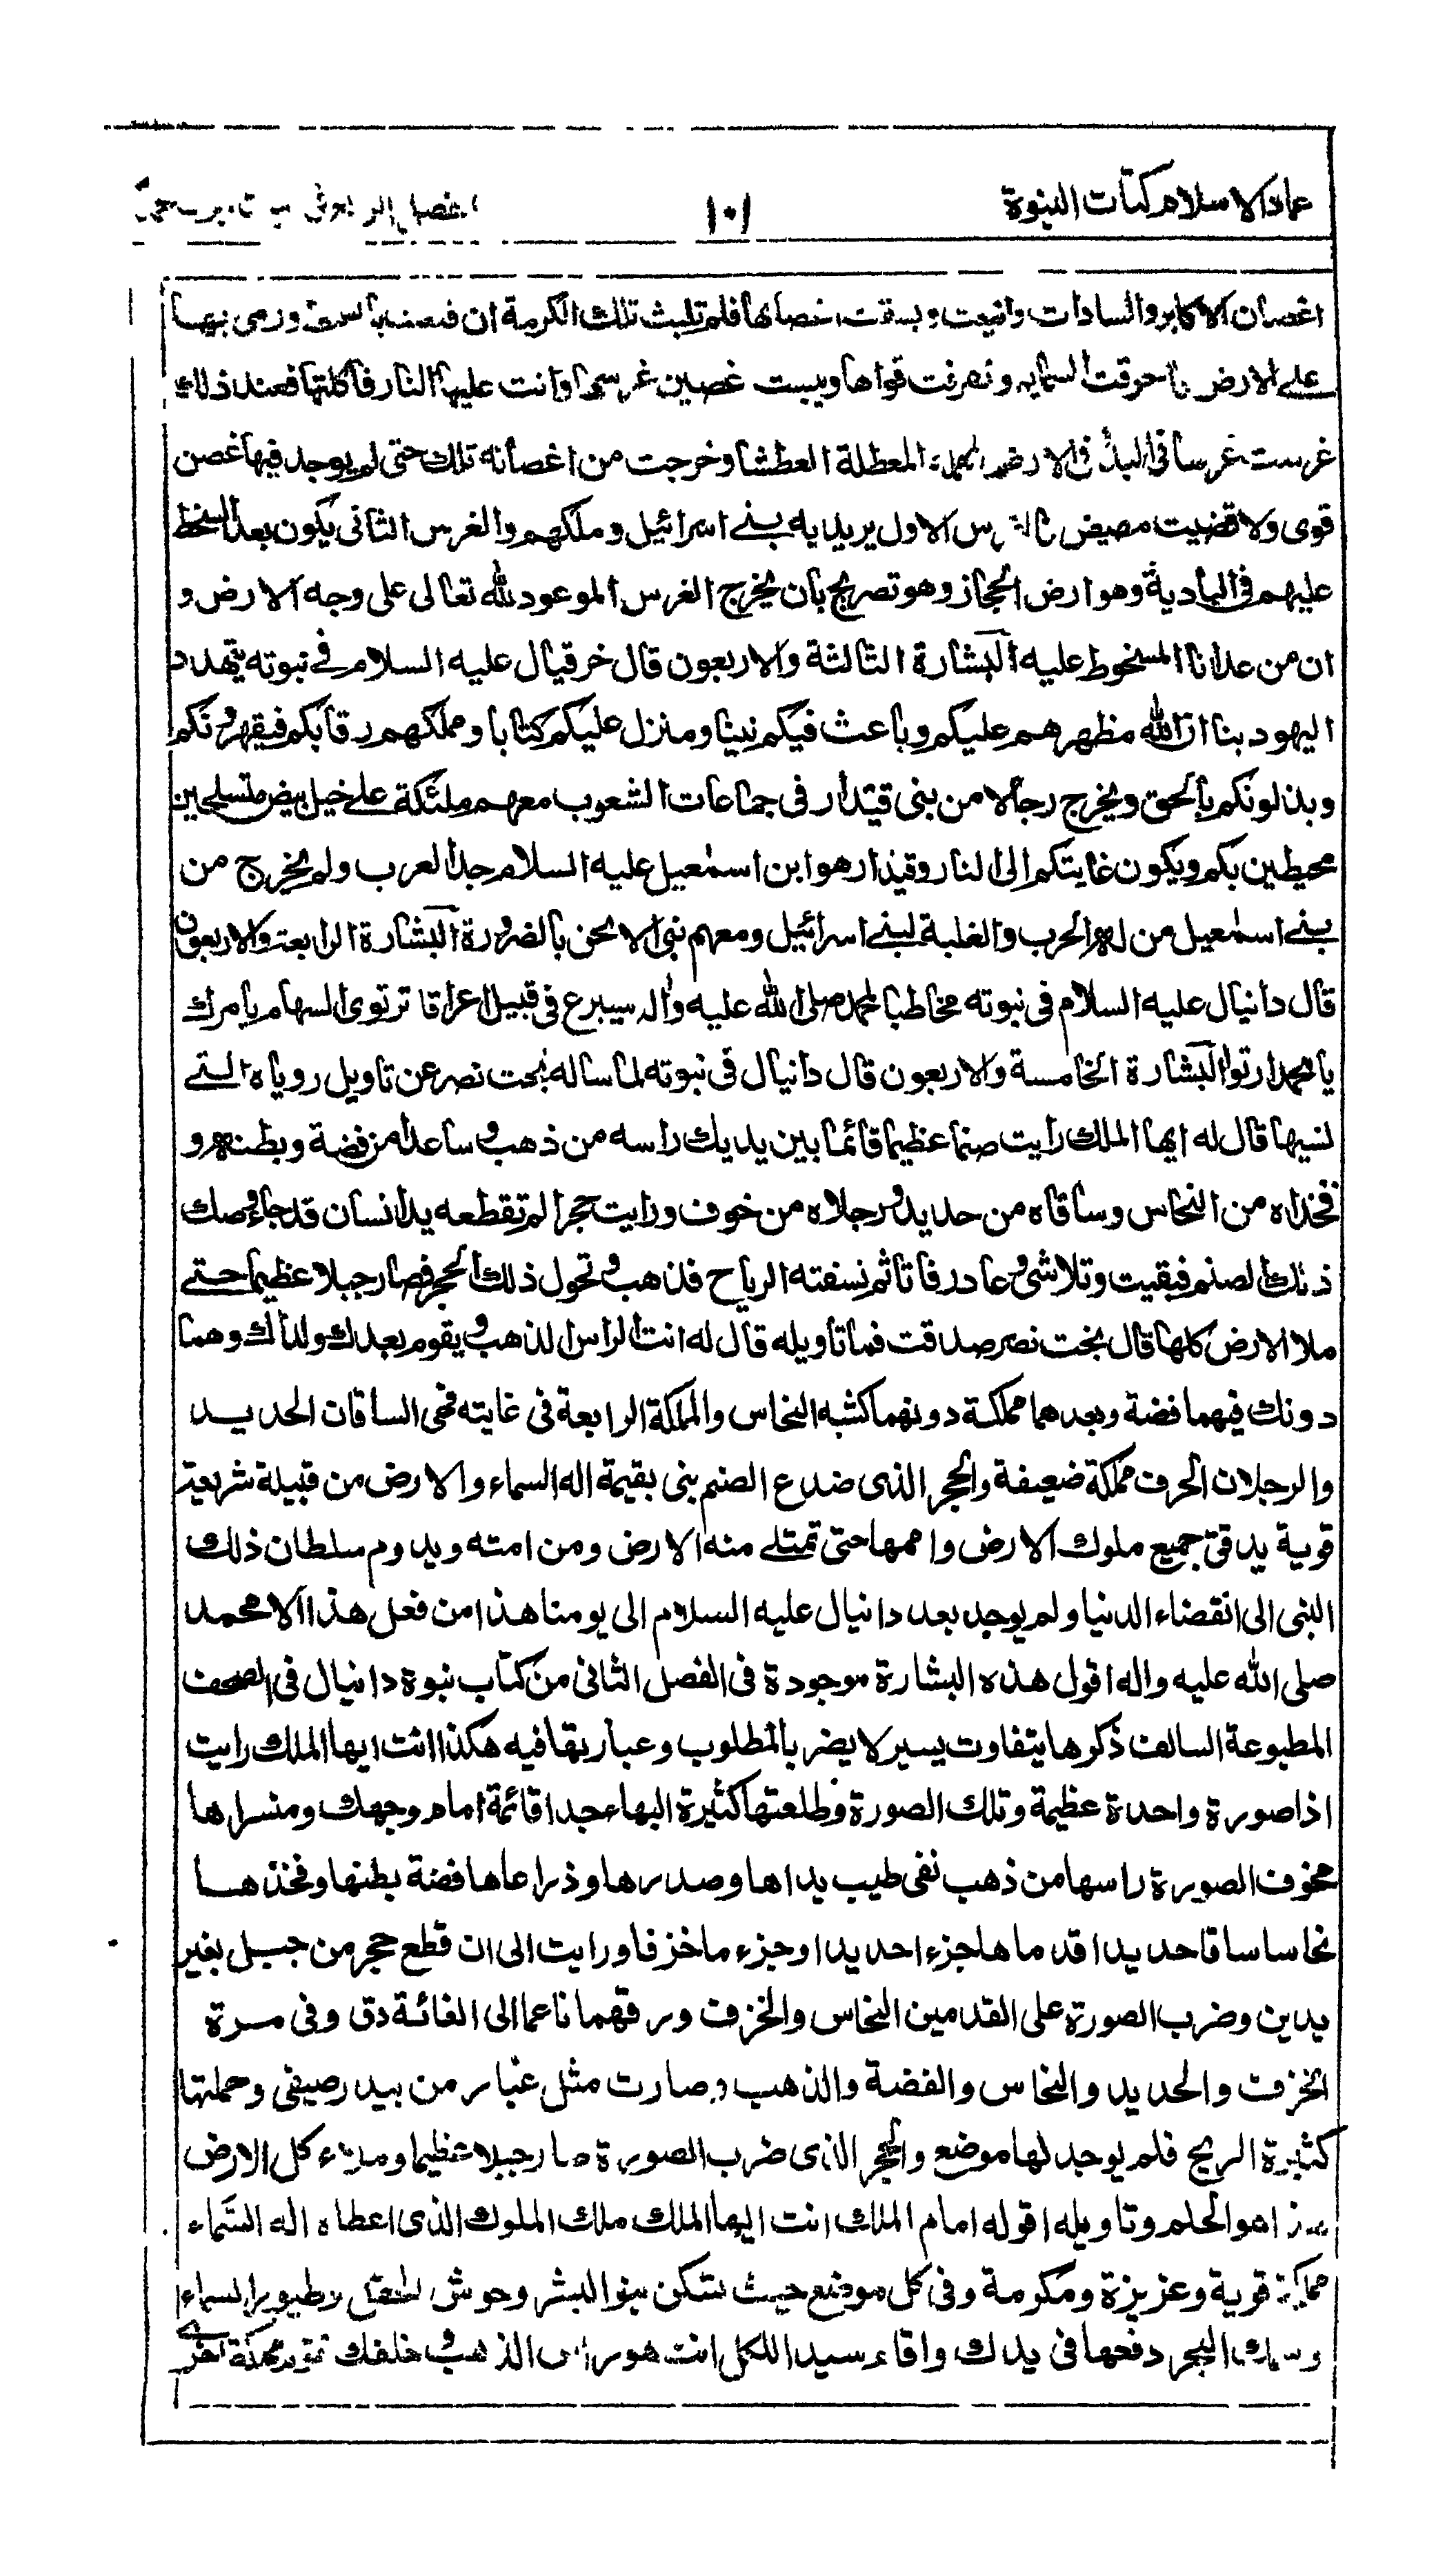 عماد الاسلام كتاب النبوة
١٠١
اغصان الاكابر والسادات واينعت وبسقت اغصانها فلم تلبث تلك الكرمة ان ورمى بها
على الارض وتفرقت قواها ويبست غصين واتت عليها النار فاكلتها فعند ذلك
غرست غرسا فى البدو فى الارض المعطلة العطشا وخرجت من اغصانه تلك حتى لم يوجد فيها غصن
قوى ولا قضيت الاول يريد به بنے اسرائيل وملكهم والغرس الثانى يكون بعد السخط
عليهم فى البادية وهو ارض الحجاز وهو تصريح بان يخرج الغرس الموعود لله تعالى على وجه الارض و
ان من عدانا المسخوط عليه البشارة الثالثة والاربعون قال خرقيال عليه السلام فے نبوته يتهدد
اليهود بنا ان الله مظهرهم عليكم وباعث فيكم نبيا ومنزل عليكم كتابا ومملكهم رقابكم فيقهرونكم
وبذلونكم بالحق ويخرج رجالا من بنى قيدار فى جماعات الشعوب معهم ملئكة علے خيل بيض متسلحين
محيطين بكم ويكون غايتكم الى النار وقيذار هو ابن اسمٰعيل عليه السلام جد العرب ولم يخرج من
بنے اسمٰعيل من له الحرب والغلبة لبنے اسرائيل ومعهم نبى الا نحن بالضرورة البشارة الرابعة والاربعون
قال دانيال عليه السلام فى نبوته مخاطبا لمحمد صلى الله عليه واله سيبرع فى قبيل اعراقا ترتوى السهام بامرك
يا محمد ارتوا البشارة الخامسة والاربعون قال دانيال فى نبوته لما ساله بخت نصر عن تاويل روياه التے
لنيها قال له ايها الملك رايت صنما عظيما قائما بين يديك راسه من ذهب وساعداه من فضة وبطنه و
فخذاه من النحاس وساقاه من حديد ورجلاه من خوف ورايت حجرا لم تقطعه يد انسان قد جاء وصك
ذلك الصنم فبقيت وتلاشى وعاد رفاتا ثم نسفته الرياح فذهب وتحول ذلك الحجر فصار جبلا عظيما حتے
ملا الارض كلها قال بخت نصر صدقت فما تاويله قال له انت الراس الذهب ويقوم بعدك ولداك وهما
دونك فيهما فضة وبعدهما مملكة دونهما كشبه النحاس والمملكة الرابعة فى غايته فهى الساقان الحديد
والرجلان الحرف مملكة ضعيفة والحجر الذى ضدع الصنم بنى بقيمة اله السماء والارض من قبيلة شريعة
قوية يدقق جميع ملوك الارض وامهما حتى تمتلے منه الارض ومن امته ويدوم سلطان ذلك
النبى الى انقضاء الدنيا ولم يوجد بعد دانيال عليه السلام الى يومنا هذا من فعل هذا الا محمد
صلى الله عليه واله اقول هذه البشارة موجودة فى الفصل الثانى من كتاب نبوة دانيال فى الصحف
المطبوعة السالف ذكرها بتفاوت يسير لا يضر بالمطلوب وعبارتها فيه هكذا انت ايها الملك رايت
اذا صورة واحدة عظيمة وتلك الصورة وطلعتها كثيرة البهاء جدا قائمة امام وجهك ومنسرها
مخوف الصورة راسها من ذهب نقى طيب يداها وصدرها وذراعاها فضة بطنها وفخذها
نحاسا ساقا حديدا قدماها جزء احديدا وجزء ما خزفا ورايت الى ان قطع حجر من جبل بغير
يدين وضرب الصورة على القدمين النحاس والخزف ورقهما ناعما الى الغائة دق وفى مرة
الخزف والحديد والنحاس والفضة والذهب وصارت مثل غبار من بيدر صيفى وحملتها
كثيرة الريح فلم يوجد لها موضع والحجر الذى ضرب الصورة صار جبلا عظيما وملاء كل الارض
هذا هو الحلم وتاويله اقوله امام الملك انت ايها الملك ملك الملوك الذى اعطاه اله السَّماء
مملكة قوية وعزيزة ومكرمة وفى كل موضع حيث تسكن بنو البشر وحوش الحقل وطيور السماء
وسمك البحر دفعها فى يدك واقاء سيد اللكل انت هو راس الذهب وخلفك تقوم مملكة اخرى